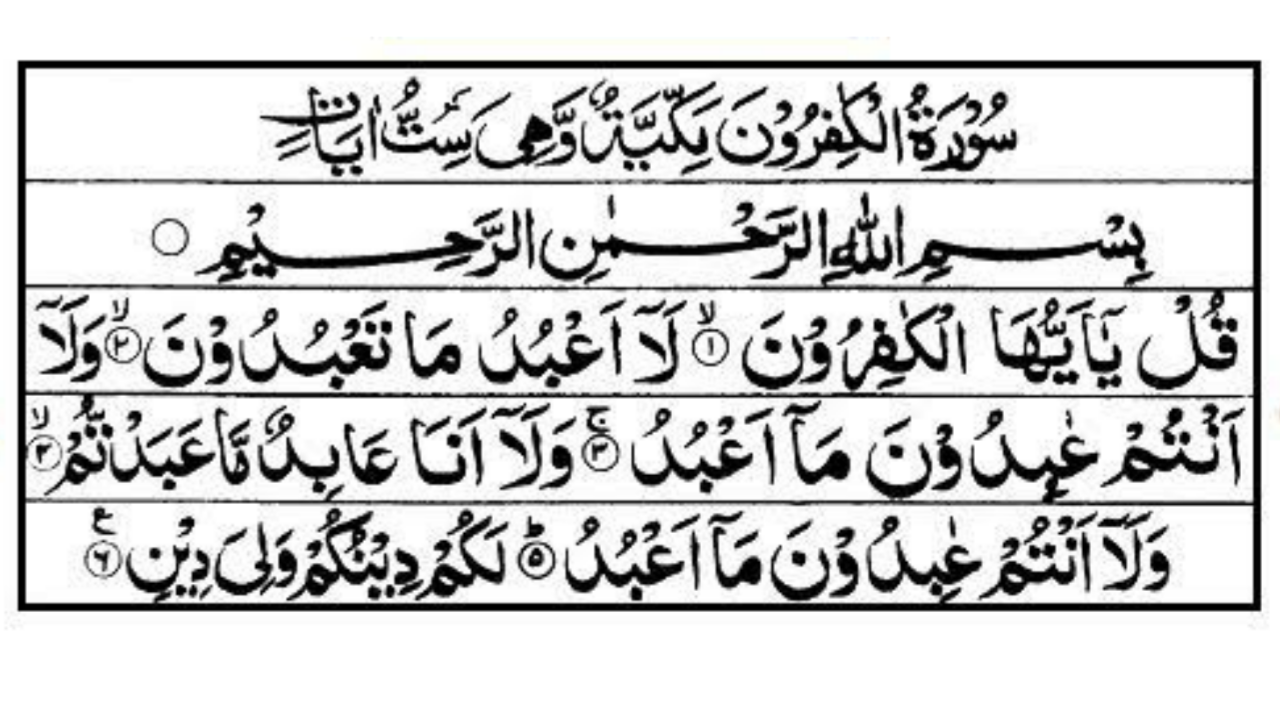 سُوْرَةُ الْكٰفِرُوْنَ مَكِّيَّةٌ وَّهِىَ سِتُّ اٰيَاتٍ
بِسْمِ اللّٰهِ الرَّحْمٰنِ الرَّحِيْمِ ○
قُلْ يٰٓاَيُّهَا الْكٰفِرُوْنَ ۙ﴿۱﴾ لَآ اَعْبُدُ مَا تَعْبُدُوْنَ ۙ﴿۲﴾ وَلَآ
اَنْتُمْ عٰبِدُوْنَ مَآ اَعْبُدُ ۚ﴿۳﴾ وَلَآ اَنَا عَابِدٌ مَّا عَبَدْتُّمْ ۙ﴿۴﴾
وَلَآ اَنْتُمْ عٰبِدُوْنَ مَآ اَعْبُدُ ؕ﴿۵﴾ لَكُمْ دِيْنُكُمْ وَلِىَ دِيْنِ ﴿۶﴾ ع